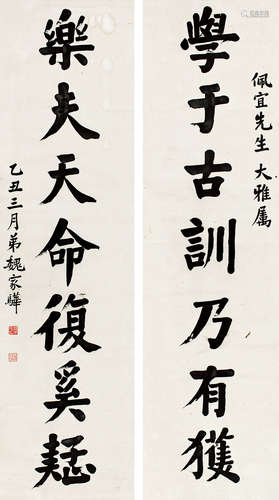 佩宜先生大雅属
學于古訓乃有獲
樂夫天命復奚疑
乙丑三月弟魏家驊